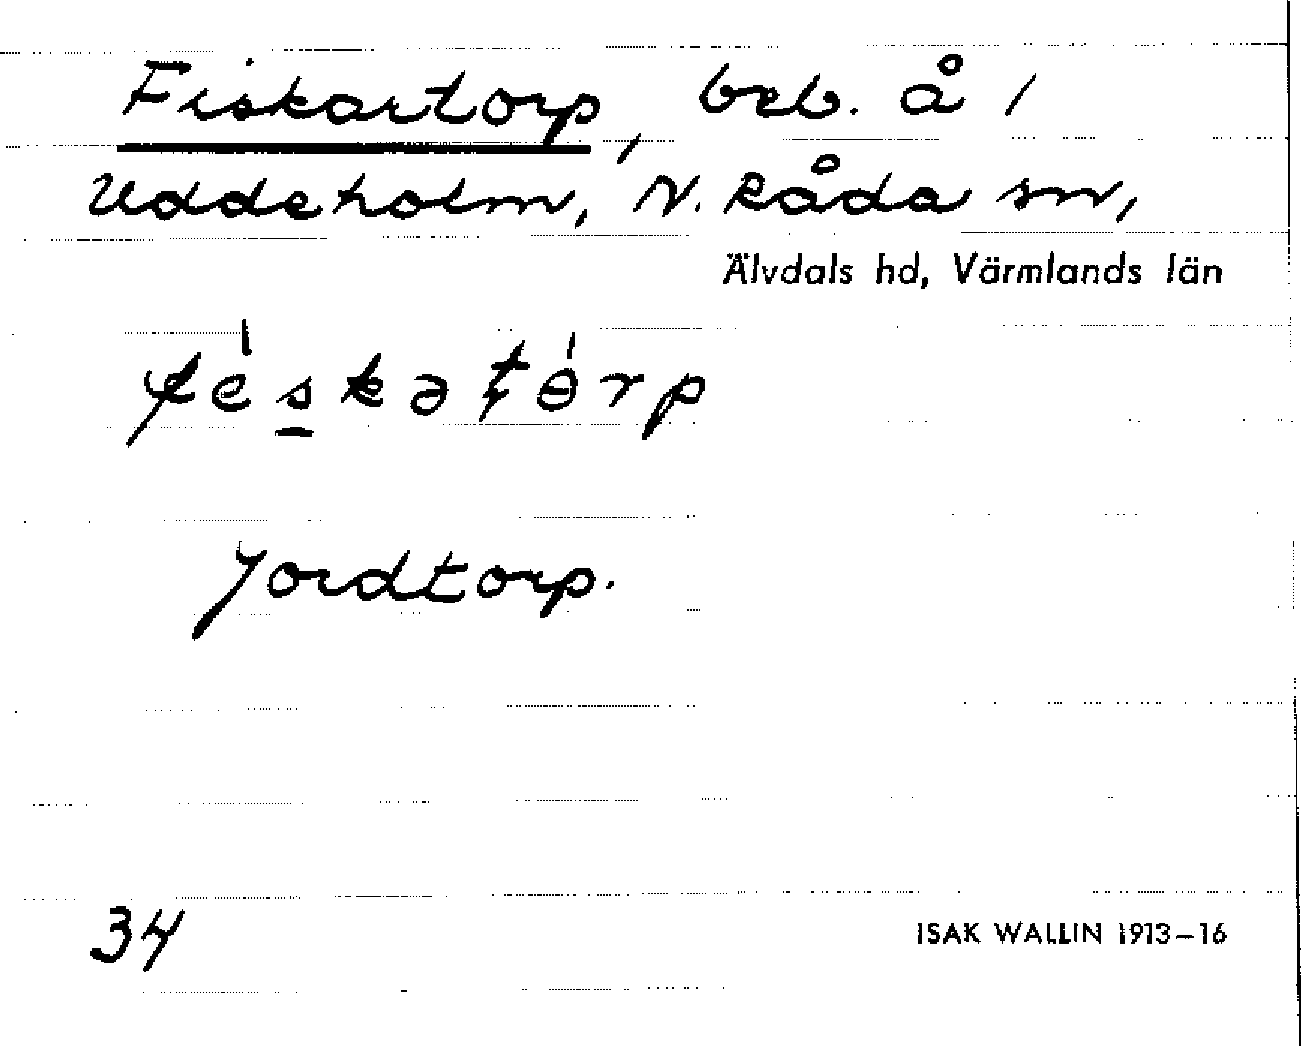 Fiskartorp, beb. å /
Uddeholm, N. Råda sn,
Älvdals hd, Värmlands län
féskatɵ́rp
Jordtorp.
34
ISAK WALLIN 1913–16